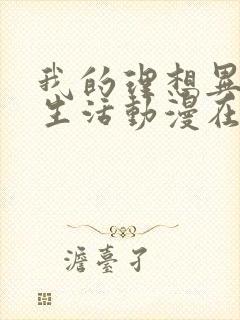 我的理想異
生活動漫在
澹臺孑